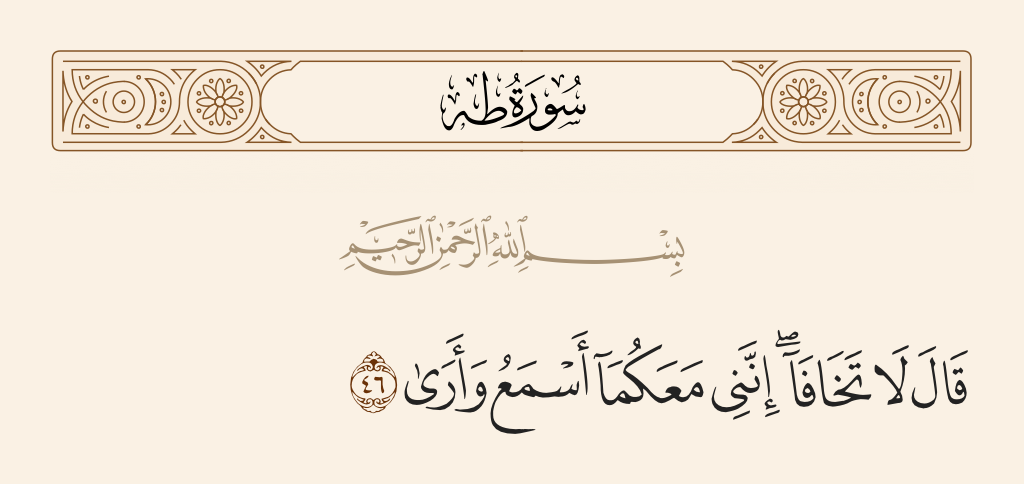 سُورَةُ طه
بِسْمِ ٱللَّهِ ٱلرَّحْمَٰنِ ٱلرَّحِيمِ
قَالَ لَا تَخَافَآ ۖ إِنَّنِى مَعَكُمَآ أَسْمَعُ وَأَرَىٰ ٤٦